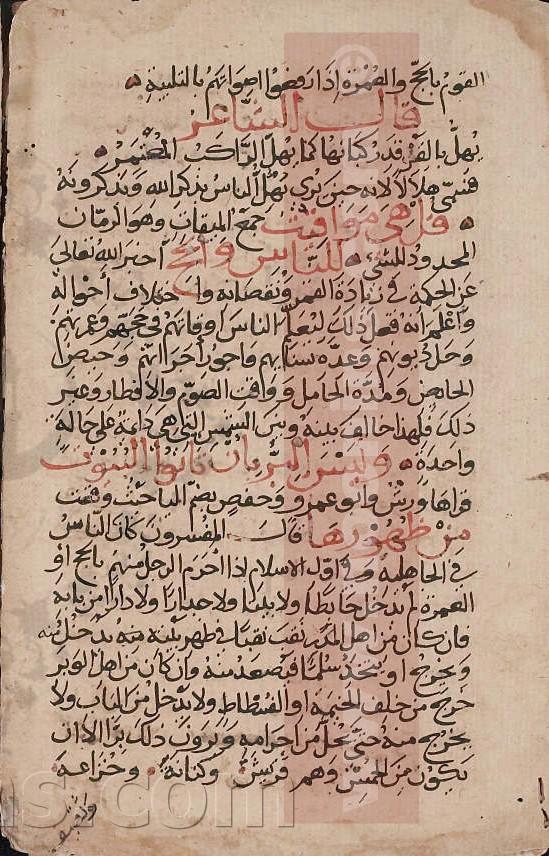 القوم بالحج والعمرة اذا رفعوا اصواتهم بالتلبية
قال الشاعر
يهل بالفرقد ركبانها كما يهل الراكب المعتمر
فسمي هلالا لانه حين يرى يهل الناس بذكر الله ويذكرونه
قل هي مواقيت جمع الميقات وهو الزمان
المحدود للشيء للناس والحج اخبر الله تعالى
عن الحكمة في زيادة القمر ونقصانه واختلاف احواله
واعلم انه فعل ذلك ليعلم الناس اوقاتهم في حجهم وعمرتهم
وحل ديونهم وعدة نسايهم واجور اجرائهم وحيض
الحائض ومدة الحامل ووقت الصوم والافطار وغير
ذلك فلهذا خالف بينه وبين الشمس التي هي دائمة على حالة
واحدة وليس البر بان تاتوا البيوت
قراها ورش وابو عمرو وحفص بضم الباء حيث وقعت
من ظهورها قال المفسرون كان الناس
في الجاهلية وفي اول الاسلام اذا احرم الرجل منهم بالحج او
العمرة لم يدخل حايطا ولا بيتا ولا دارا من بابه
فان كان من اهل المدر نقب نقبا في ظهر بيته منه يدخل منه
ويخرج او يتخذ سلما فيصعد منه وان كان من اهل الوبر
خرج من خلف الخيمة او الفسطاط ولا يدخل من الباب ولا
يخرج منه حتى يحل من احرامه ويرون ذلك برا الا ان
يكون من الحمس وهم قريش وكنانة وخزاعة